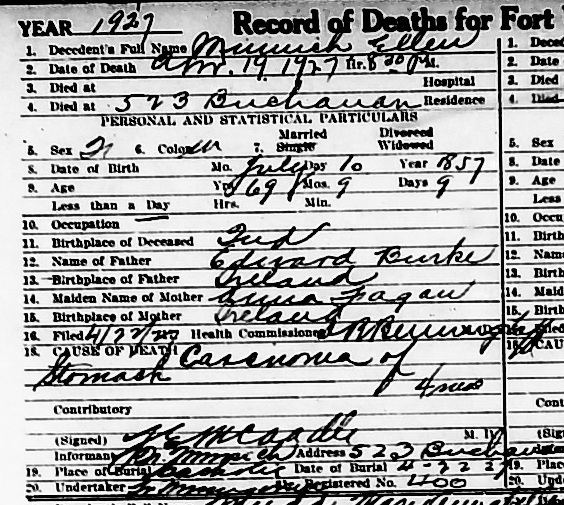 YEAR 1927 Record of Deaths for Fort
1. Decedent's Full Name Minnich Ellen
2. Date of Death Apr. 19 1927 Hr. 8 30 P M.
3. Died at Hospital
4. Died at 523 Buchanan Residence
PERSONAL AND STATISTICAL PARTICULARS
Married Divorced
5. Sex 6. Color W 7. Single Widowed
8. Date of Birth Mo. July Day 10 Year 1857
9. Age Yrs. 69 Mos. 9 Days 9
Less than a Day Hrs. Min.
10. Occupation
11. Birthplace of Deceased Ind
12. Name of Father Edward Burke
13. Birthplace of Father Ireland
14. Maiden Name of Mother Anna Fagan
15. Birthplace of Mother Ireland
16. Filed 4/22/27 Health Commissioner
18. CAUSE OF DEATH Carcnoma of
Stomach
4 mos
Contributory
(Signed) McArdle M. D.
Informant Minnich Address 523 Buchanan
19. Place of Burial Catholic Date of Burial 4-22 27
20. Undertaker Registered No. 400
1. Deced
2. Date
3. Died
4. Died
5. Sex
8. Date
9. Age
Less
10. Occu
11. Birth
12. Name
13. Birth
14. Maid
15. Birth
18. CAU
Cont
(Sig
19. Place
20. Und